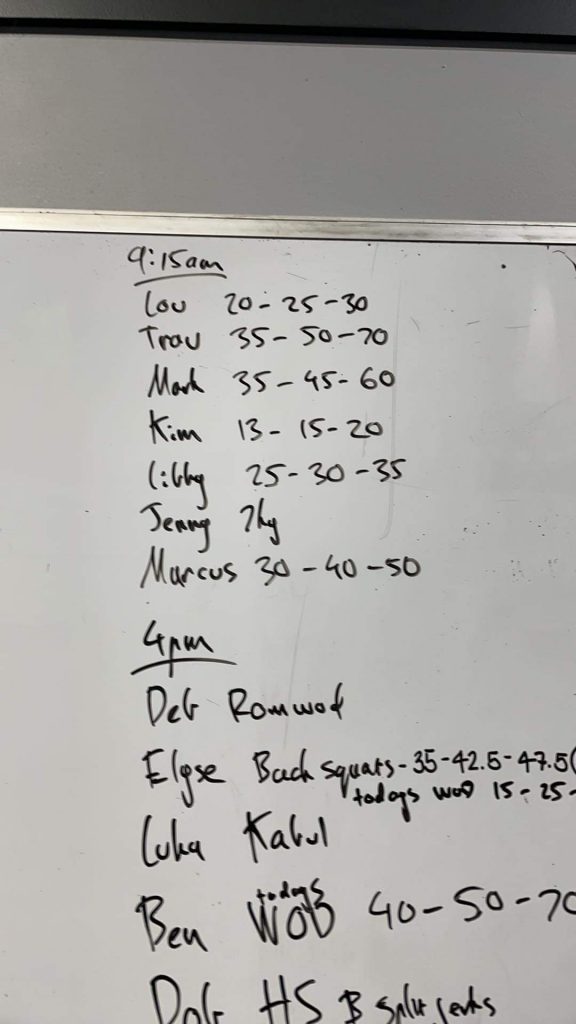 9:15am
Lou 20-25-30
Trav 35-50-70
Mark 35-45-60
Kim 13-15-20
Libby 25-30-35
Jenny 7kg
Marcus 30-40-50
4pm
Deb Romwod
Elyse Back squats-35-42.5-47.5(
todays WOD 15-25-
Luka Kabul
todays
Ben WOD 40-50-70
HS B Split jerks